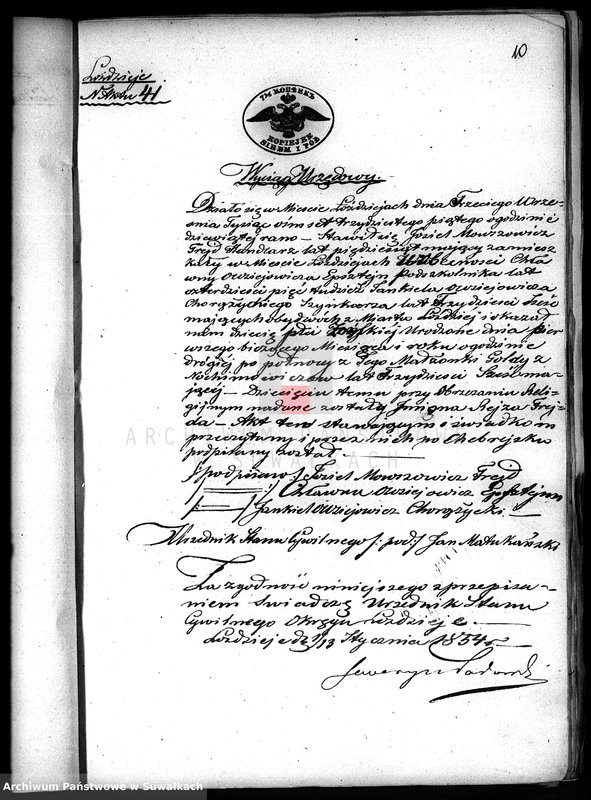 10
Łozdzieje
N Aktu 41
7½ КОПѢЕКЪ
KOPIEJEK
SIEDM I PÓŁ
Wyciąg Urzędowy.
Działo się w Mieście Łozdziejach dnia Trzeciego Wrze-
śnia Tysiąc ośmset trzydziestego piątego o godzinie
dziewiątej rano – Stawił się Josiel Mowszowicz
Frejd Handlarz lat mający zamiesz-
kały w Mieście Łozdziejach w Obecności Chła-
wny Owziejowicza Epsztejn Podszkolnika lat
czterdzieści pięć tudzież Jankiela Owziejowicza
Chorążyckiego Szynkarza lat Trzydzieści Sześć
mających obydwóch z Miasta Łozdziej i okazał
nam dziecię płci Urodzone dnia pier
wszego bieżącego Miesiąca i roku o godzinie
drógiéj po północy z Jego Małżonki Gołdy z
Nochimowiczów lat Trzydzieści Sześć ma-
jącej – Dziecięciu temu przy Obrzezaniu Reli-
gijnym nadane zostały Imiona Frej-
da – Akt ten stawającym i świadkom
przeczytany i przez nich po Chebrejsku
podpisany został
podpisano Josiel Mowszowicz Frejd
Chławna Owziejowicz Epsztejn
Jankiel Owziejowicz Chorążycki. –
Urzednik Stanu Cywilnego /: pod: / Jan Matukański
Za zgodność niniejszego z przepisa-
niem świadczę Urzednik Stanu
Cywilnego Okręgu Łozdzieje. –
Łozdzieje d. 1/13 Stycznia 1854 r.
Seweryn
ARCHIWUM
W SUWAŁKACH
Archiwum Państwowe w Suwałkach